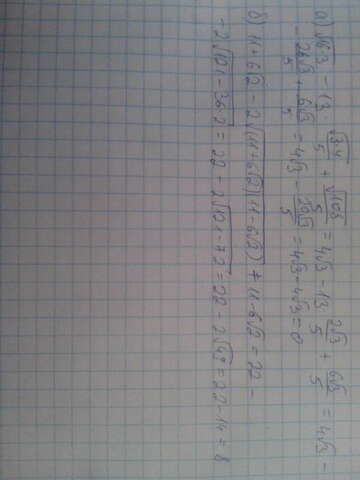 а) √16·3 - 13 √3·4/5 + √108/5 = 4√3 - 13 2√3/5 + 6√3/5 = 4√3 -
- 26√3/5 + 6√3/5 = 4√3 - 20√3/5 = 4√3 - 4√3 = 0
б) 11+6√2 - 2√(11+6√2)(11-6√2) + 11-6√2 = 22 -
- 2√121-36·2 = 22 - 2√121-72 = 22 - 2√49 = 22 - 14 = 8